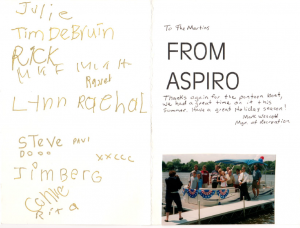 Julie
Tim DeBruin
RICK
MKE
Lynn Rachal
STeve PAUL
XXCCC
Jim Berg
Rita
To The Martins
FROM
ASPIRO
Thanks again for the pontoon boat,
we had a great time on it this
summer. Have a great Holiday season!
Mark Wescott
Mgr. of Recreation